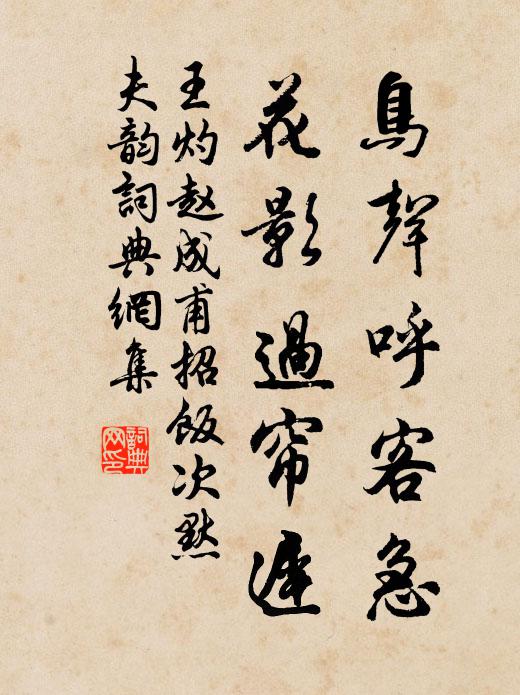 鳥聲呼客急
花影過帘遲
王灼赵成甫招飯次默
夫韵詞典網集
詞典
网印